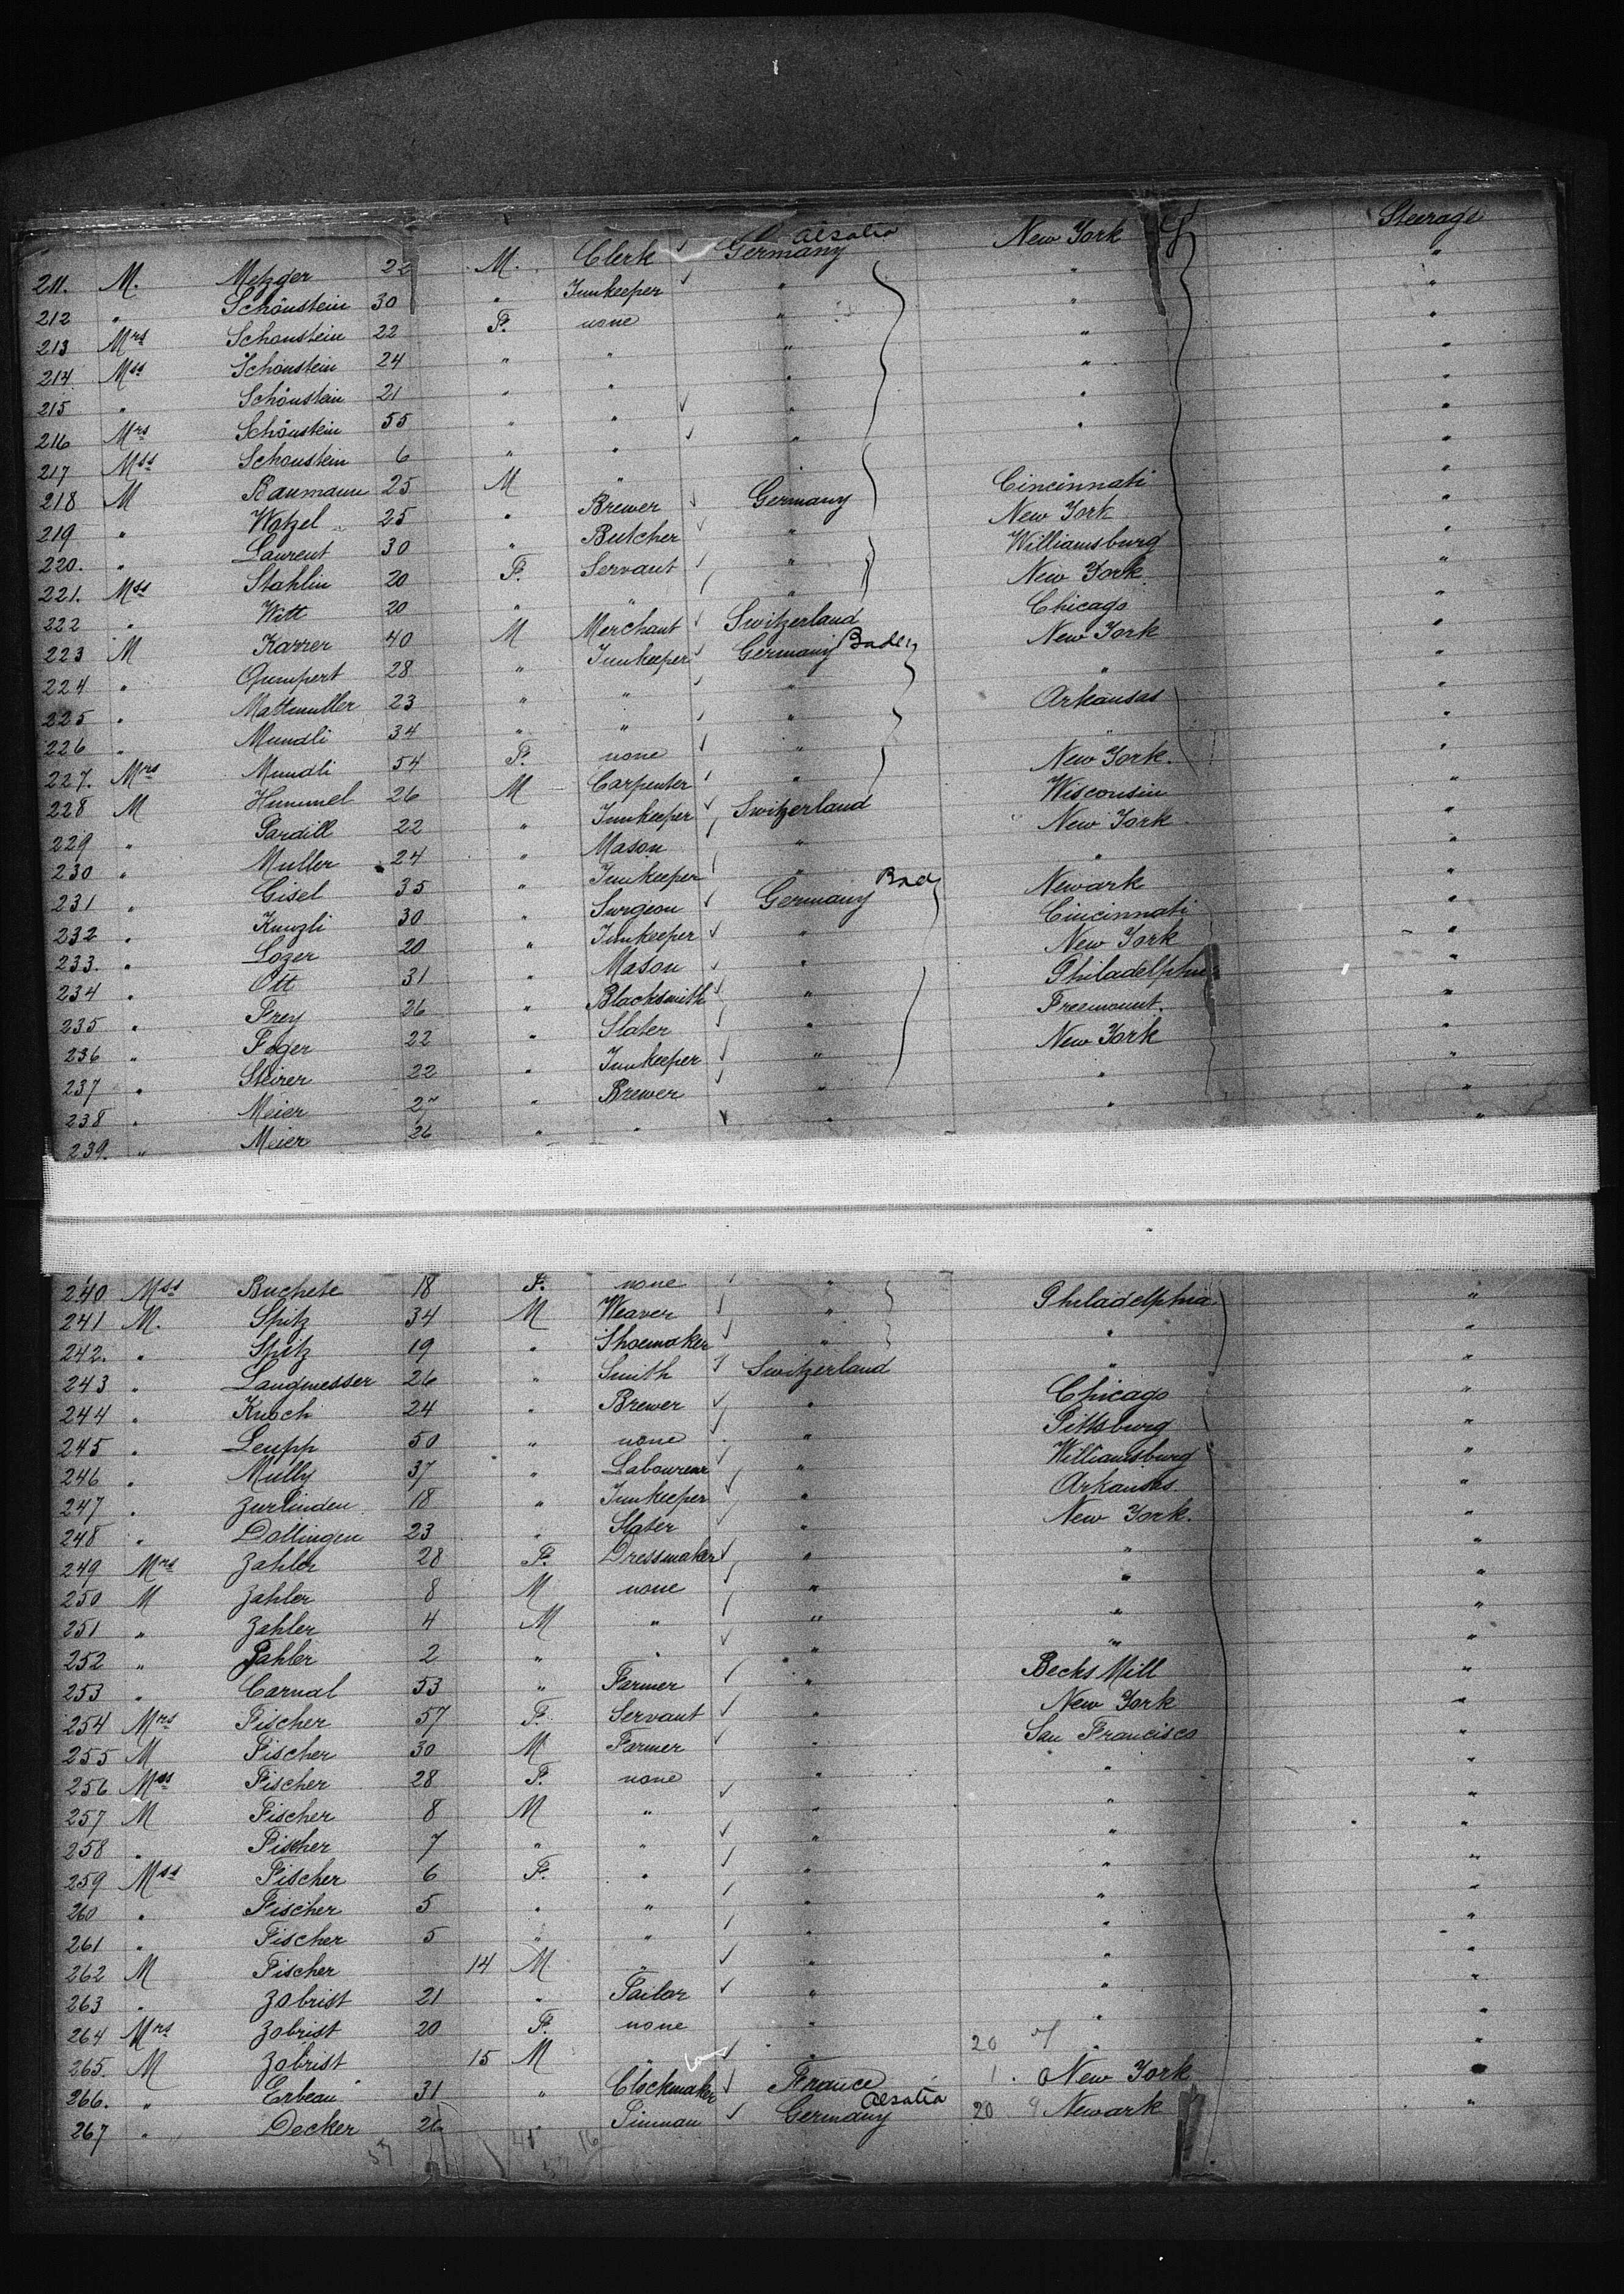 211. M. Metzger 22 M. Clerk Germany Alsatia New York Steerage
212 " Schönstein 30 " Innkeeper " " "
213 Mrs Schonstein 22 F. none " " "
214. Mss Schonstein 24 " " " " "
215 " Schönstein 21 " " " " "
216 Mrs Schönstein 55 " " " " "
217 Mss Schonstein 6 " " " "
218 M Baumann 25 M " Germany Cincinnati "
219 " Watzel 25 " Brewer " New York "
220. " Laurent 30 " Butcher " Williamsburg "
221. Mss Stahlin 20 F. Servant " New York "
222 " Witt 20 " " Switzerland Chicago "
223 M Karrer 40 M Merchant Germany Baden New York "
224 " Gumpert 28 " Innkeeper " " "
225 " Mattmuller 23 " " " Arkansas "
226 " Mundli 34 " " " " "
227. Mrs Mundli 54 F. none " New York. "
228 M Hummel 26 M Carpenter Switzerland Wisconsin "
229 " Pardill 22 " Innkeeper " New York "
230 " Muller 24 " Mason " " "
231 " Gisel 35 " Innkeeper Germany Bad Newark "
232 " Kunzli 30 " Surgeon " Cincinnati "
233. " Lozer 20 " Innkeeper " New York "
234 " Ott 31 " Mason " Philadelphia "
235 " Frey 26 " Blacksmith " Freemount. "
236 " Foger 22 " Slater " New York "
237 " Steirer 22 " Innkeeper " " "
238 " Meier " Brewer " " "
239. " Meier 26 " "
240 Mss Buchete 18 F. none " Philadelphia "
241 M. Spitz 34 M Weaver " " "
242. " Spitz 19 " Shoemaker " " "
243 " Langmesser 26 " Smith Switzerland Chicago "
244 " Knoch 24 " Brewer " Pittsburg "
245 " Leupp 50 " none " Williamsburg "
246 " Mully 37 " Labourer " Arkansas. "
247 " Zurlinden 18 " Innkeeper " New York. "
248 " Dollingen 23 " Slater " " "
249 Mrs Zahler 28 F. Dressmaker " " "
250 M Zahler 8 M none " " "
251 " Zahler 4 M " " " "
252 " Zahler 2 " " " "
253 " Carnal 53 " Farmer " Becks Mill "
254 Mrs Fischer 57 F. Servant " New York "
255 M Fischer 30 M Farmer " San Francisco "
256 Mss Fischer 28 F. none " " "
257 M Fischer 8 M " " " "
258 " Fischer 7 " " " " "
259 Mss Fischer 6 F. " " " "
260 " Fischer 5 " " " " "
261 " Fischer 5 " " " " "
262 M Fischer 14 M " " " "
263 " Zobrist 21 " Tailor " " "
264 Mrs Zobrist 20 F. none " " "
265. M Zobrist 15 M " " 20
266. " Erbeau 31 " Clockmaker France 1. New York
267 " Decker 26 " Germany Alsatia 20 Newark "